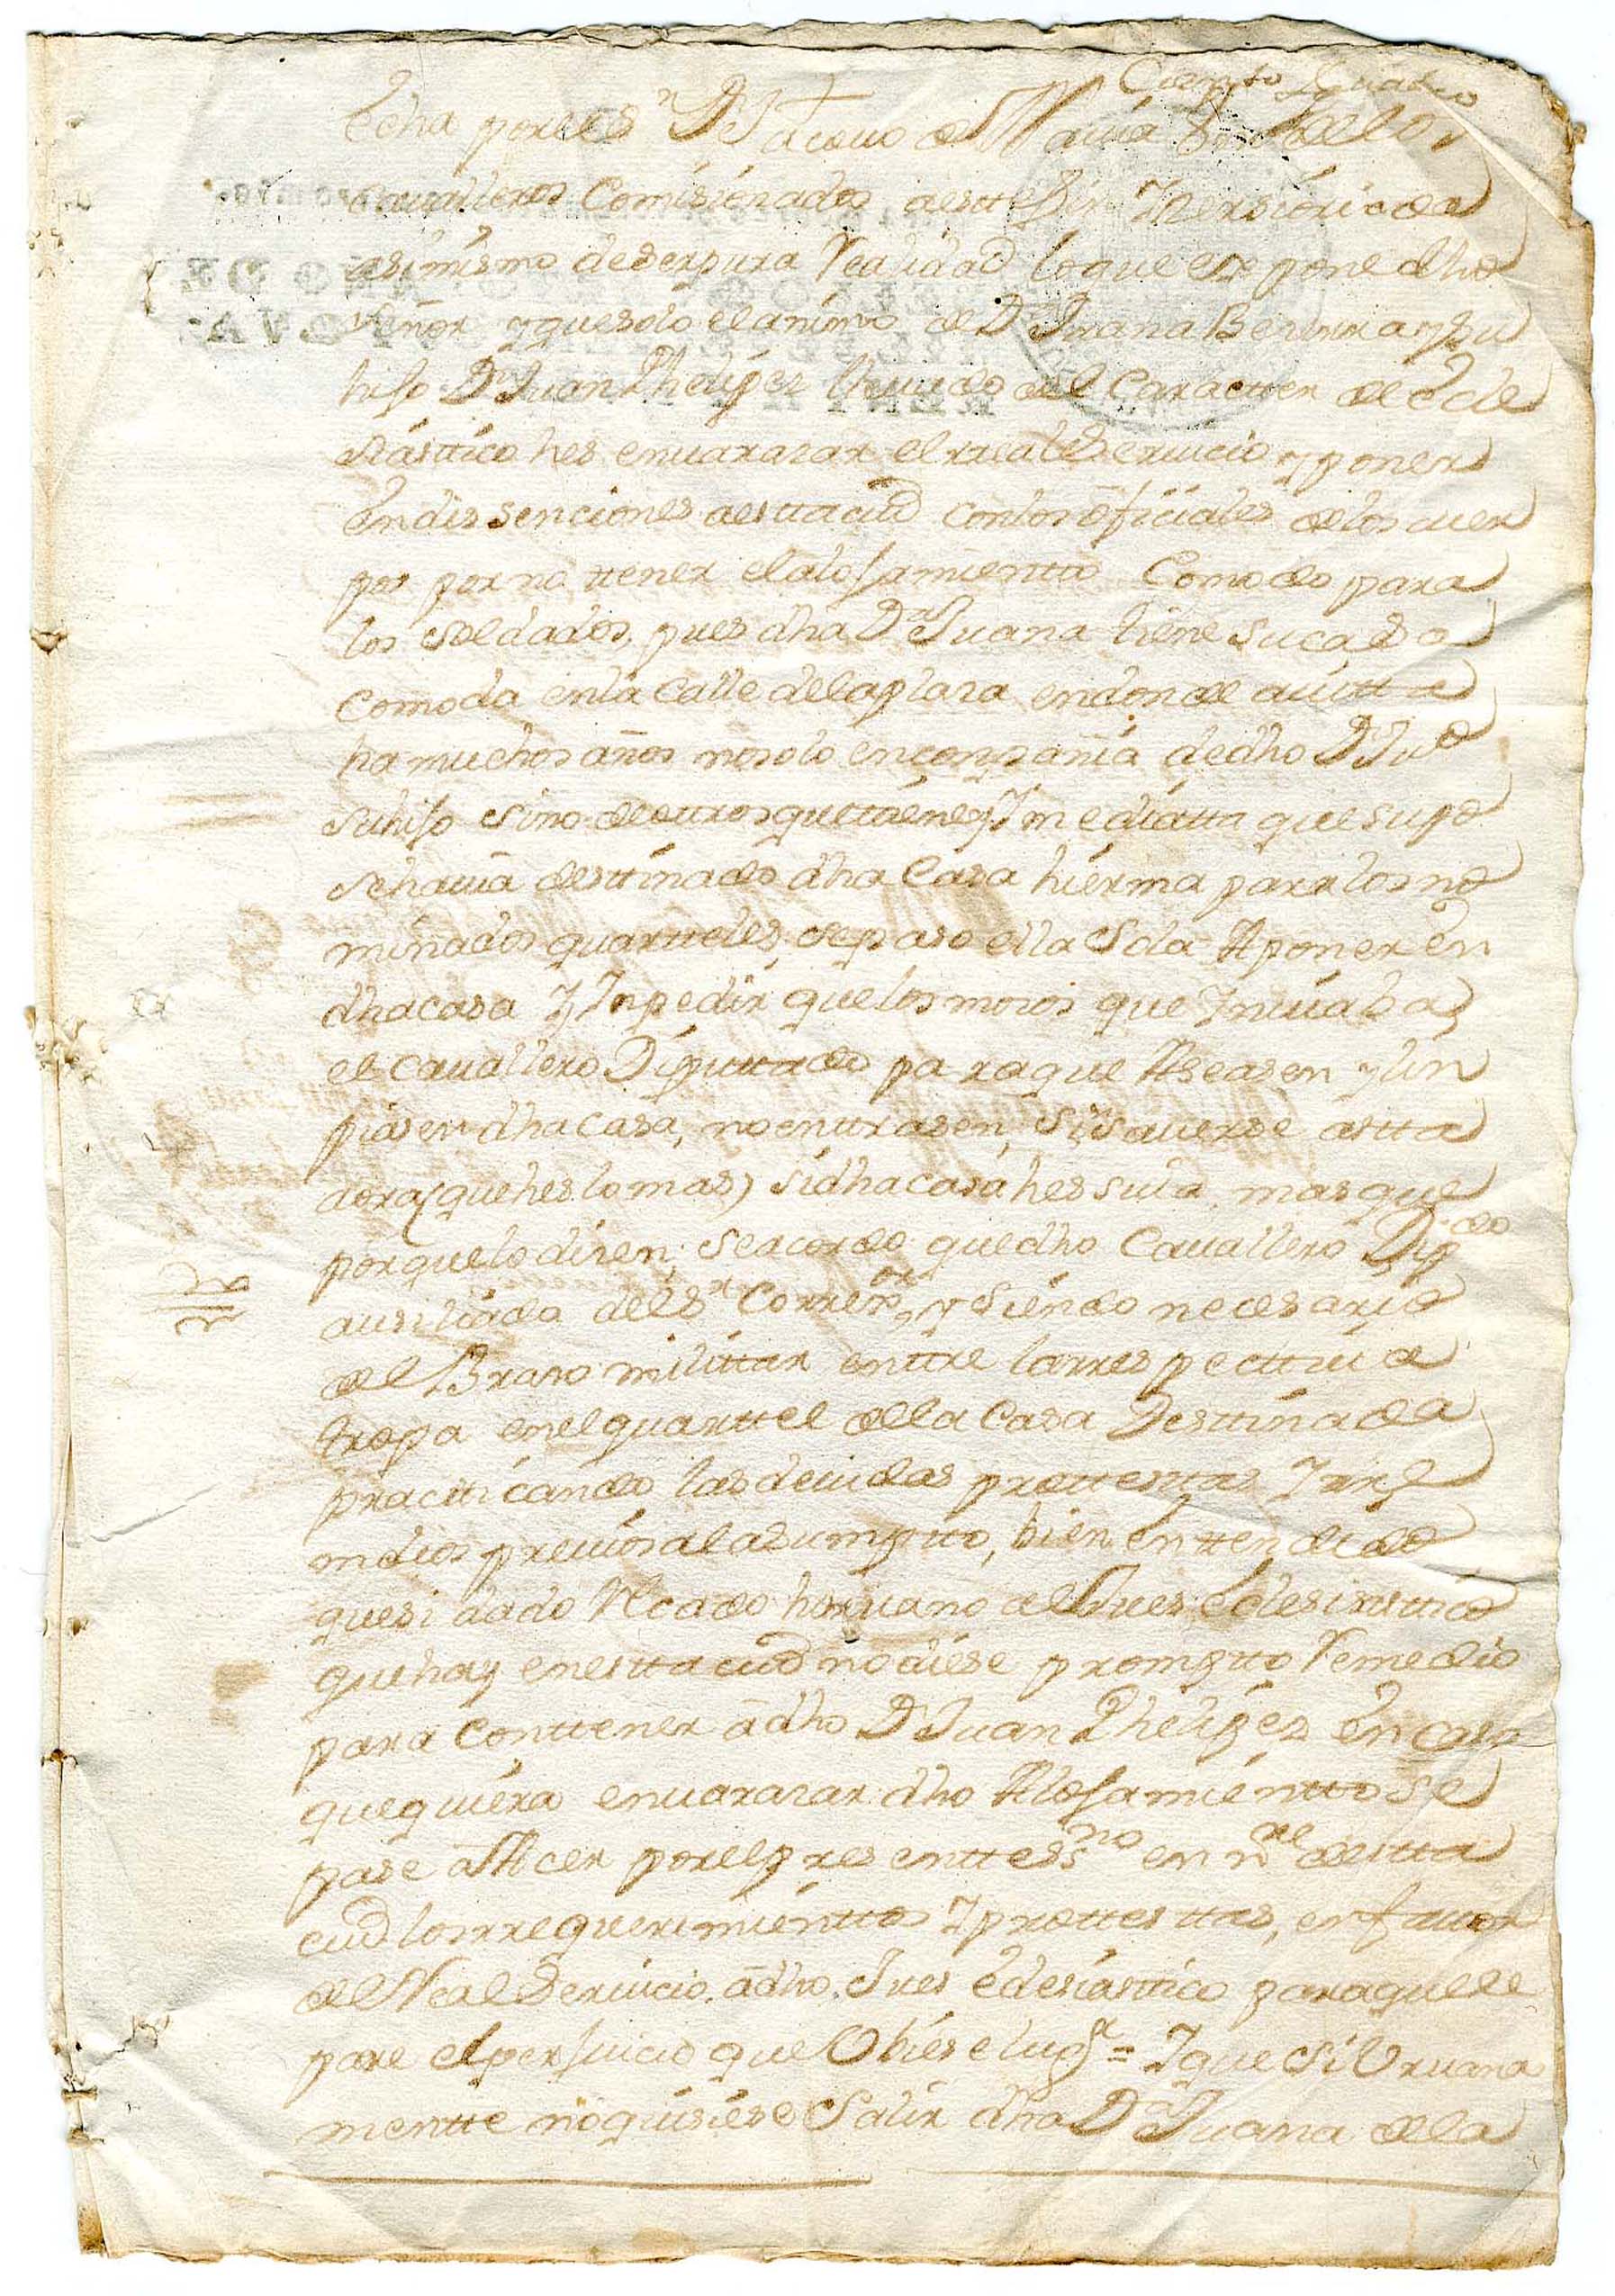 Ciento y quatro
Echa por el Sr Dn Jacouo de Maria Uno de los
caualleros Comisionados desttefin Y Zersiorada
asimismo de ser pura Realidad lo que expone dho
Señor y que solo el animo de Da Juana y su
hijo Dn Juan Phelipez del Caractter de Ecle
siásttico hes enuarazar el rreal Seruicio y poner
En dissenciones a estta ciud con los oficiales de los cuer
pos por no ttener el alojamientto Comodo para
los soldados, pues dha Da Juana tiene su casa
comoda en la Calle de la plaza en donde auitta
ha muchos años no solo en conpañia de dho Dn Juo
su hijo sino de ottros que ttiene, Y Inmediatta que supo
se hauia desttinado dha Casa hierma para los no
minados quartteles, se paso ella Sola A poner en
dha casa Y Inpedir que los mozos que Inuiaba
el cauallero Diputtado para que Aseasen y lin
piasen dha casa, no enttrasen, sin sauerse astta
aora (que hes lo mas) si dha casa hes suia, mas que
porque lo dizen; se acordo que dho Cauallero Dipdo
ausiliado del Sr Correxor, y siendo necesario
del Brazo milittar enttre la rrespecttiua
tropa en el quarttel de la Casa Desttinada
practticando las deuidas prottesttas Y rre
medios preuios al asumptto, bien enttendido
que si dado Recado huruano al Juez Eclesiasttico
que hay en estta ciud no diese promptto Remedio
para conttener a dho Dn Juan Phelipez En caso
que quiera enuarazar dho Alojamientto se
pase a Acer por el presentte Essno en nre de estta
ciud los rrequerimienttos Y prottesttas, en fauor
del Real Seruicio a dho Juez Eclesiasttico para que le
pare el perjuicio que Obiese lugr = Y que si Uruana
mentte no quisiese Salir dha Da Juana de la